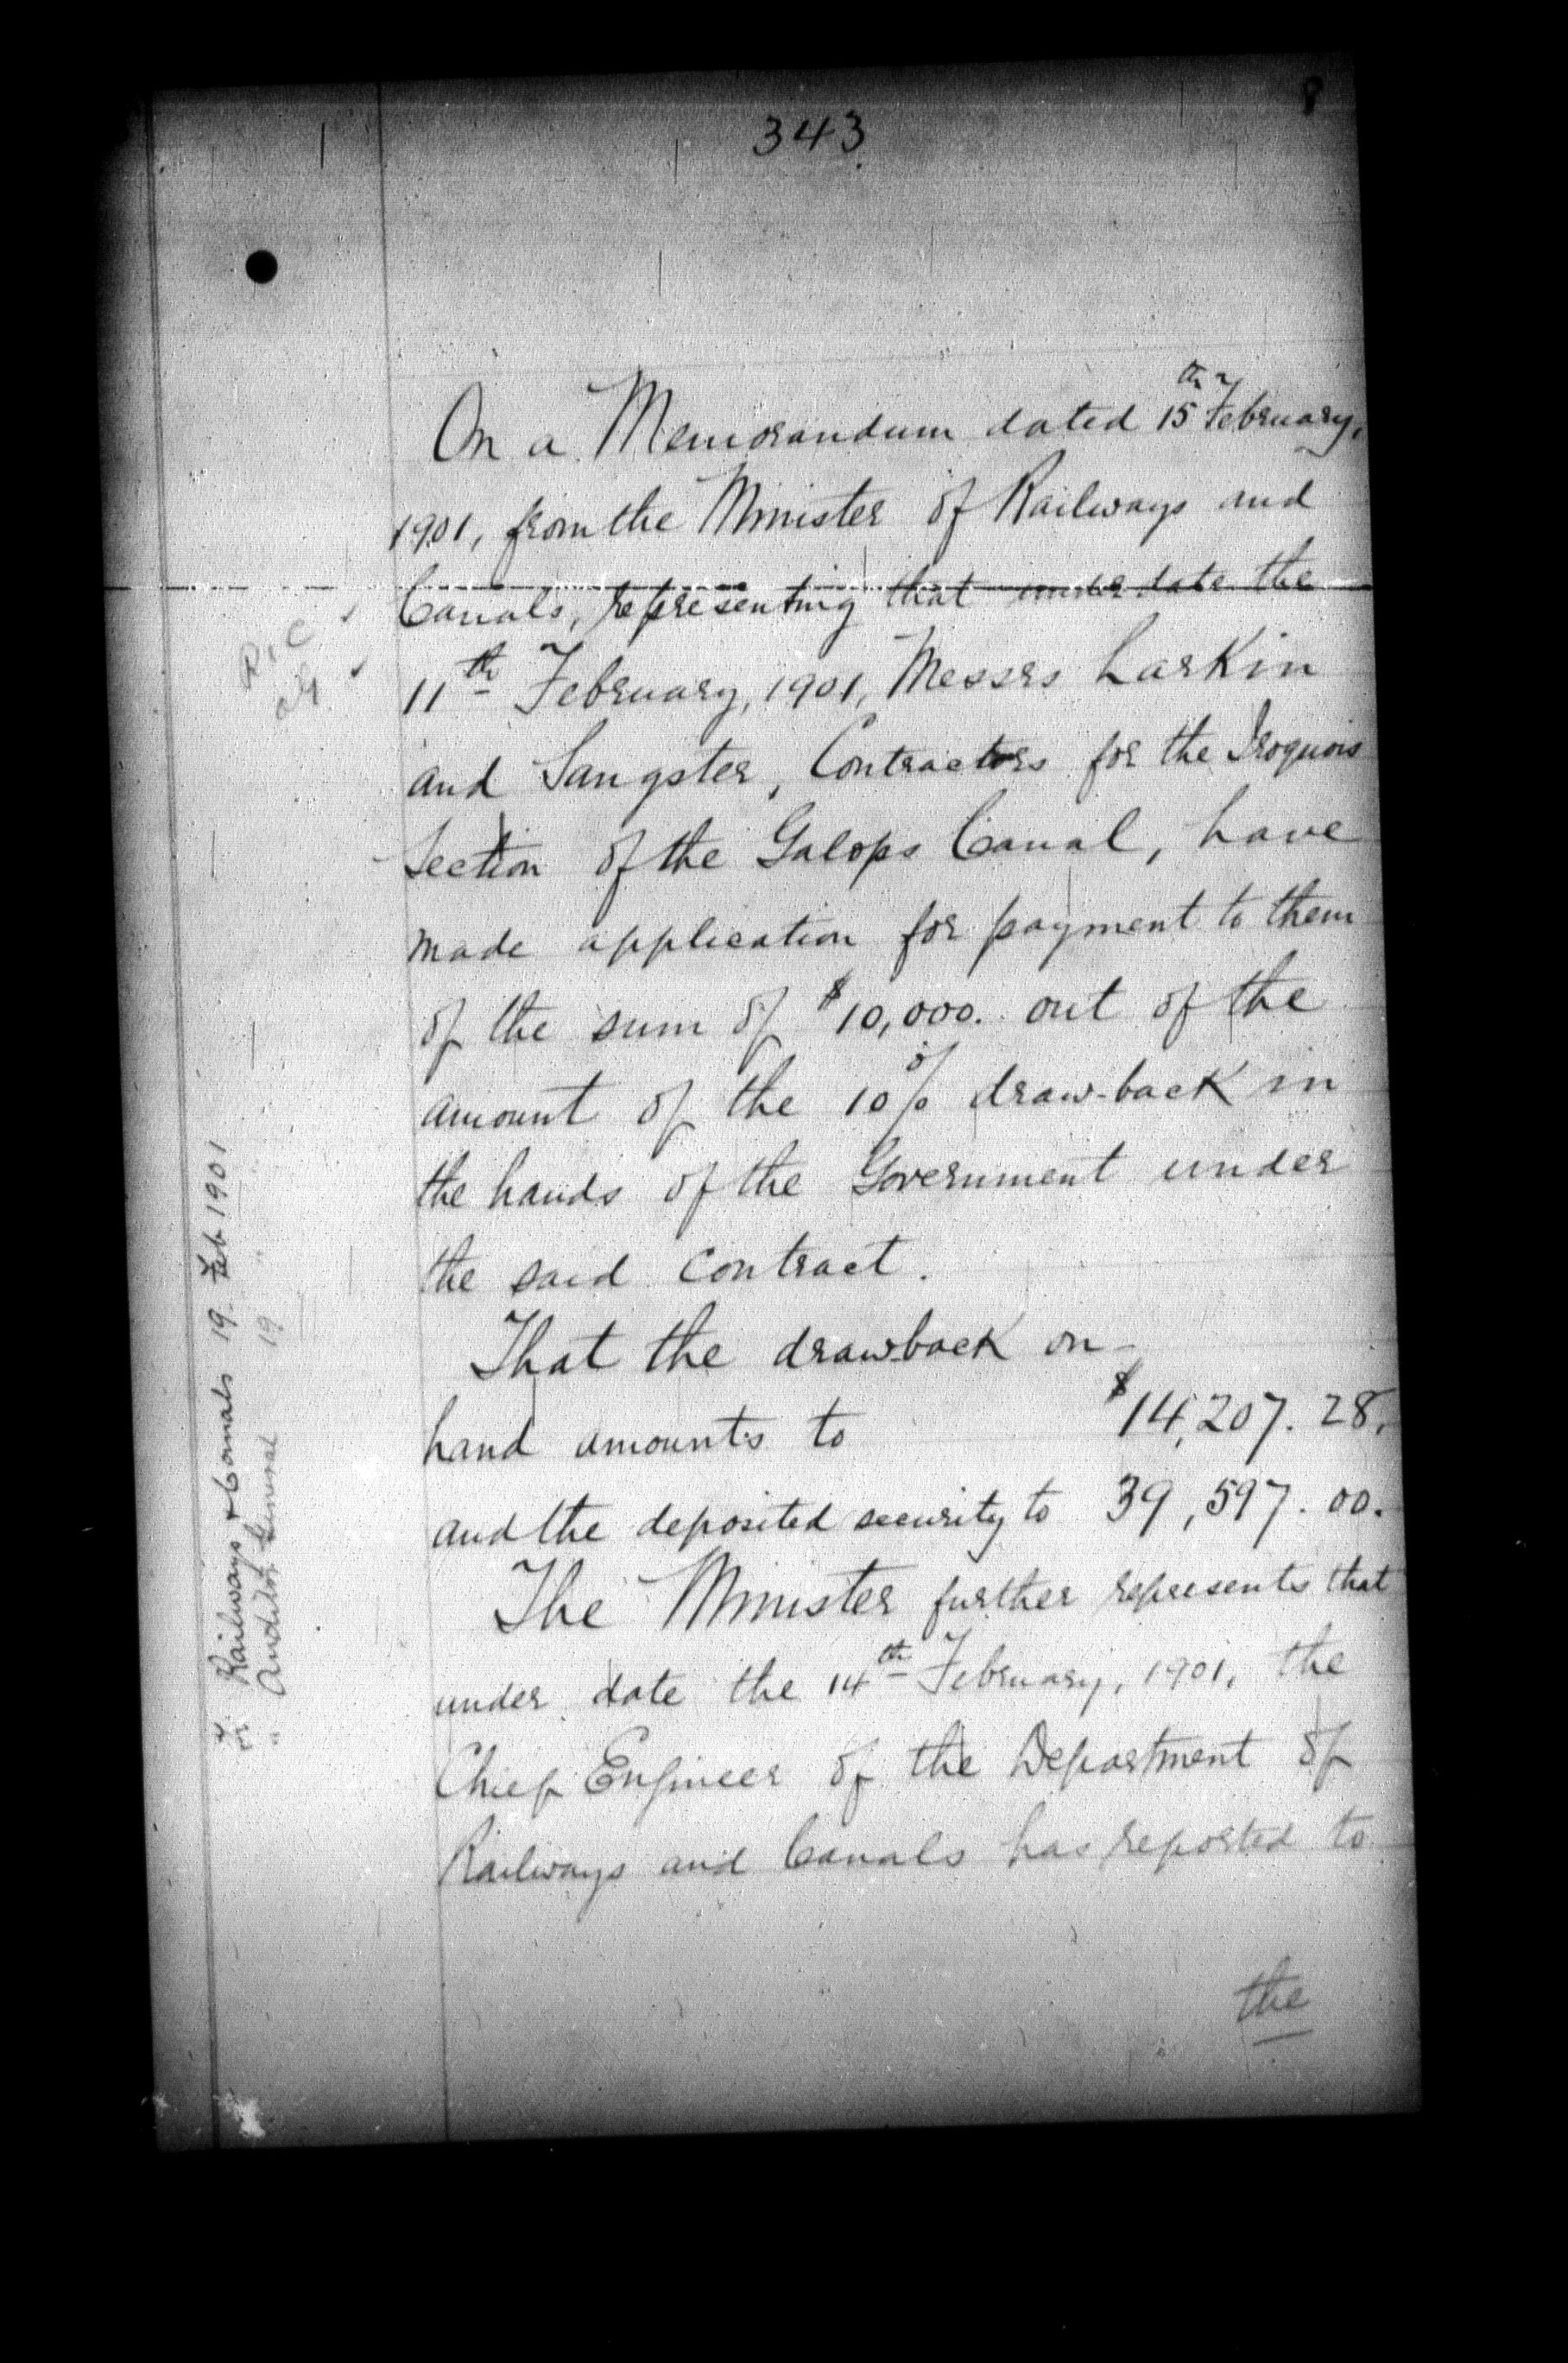 343
On a Memorandum dated 15th February,
1901, from the Minister of Railways and
Canals, representing that under date the
11th February, 1901, Messrs Larkin
and Sangster, Contractors for the Iroquois
Section of the Galops Canal, have
made application for payment to them
of the sum of $10,000. out of the
amount of the 10% draw-back in
the hands of the Government under
the said contract.
That the drawback on
hand amounts to $14,207.28.
and the deposited security to 39,597.00.
The Minister further represents that
under date the 14th February, 1901, the
Chief Engineer of the Department of
Railways and Canals has reported to
the
R, C
AG
For Railways & Canals 19 Feb 1901
" Auditor General 19 "